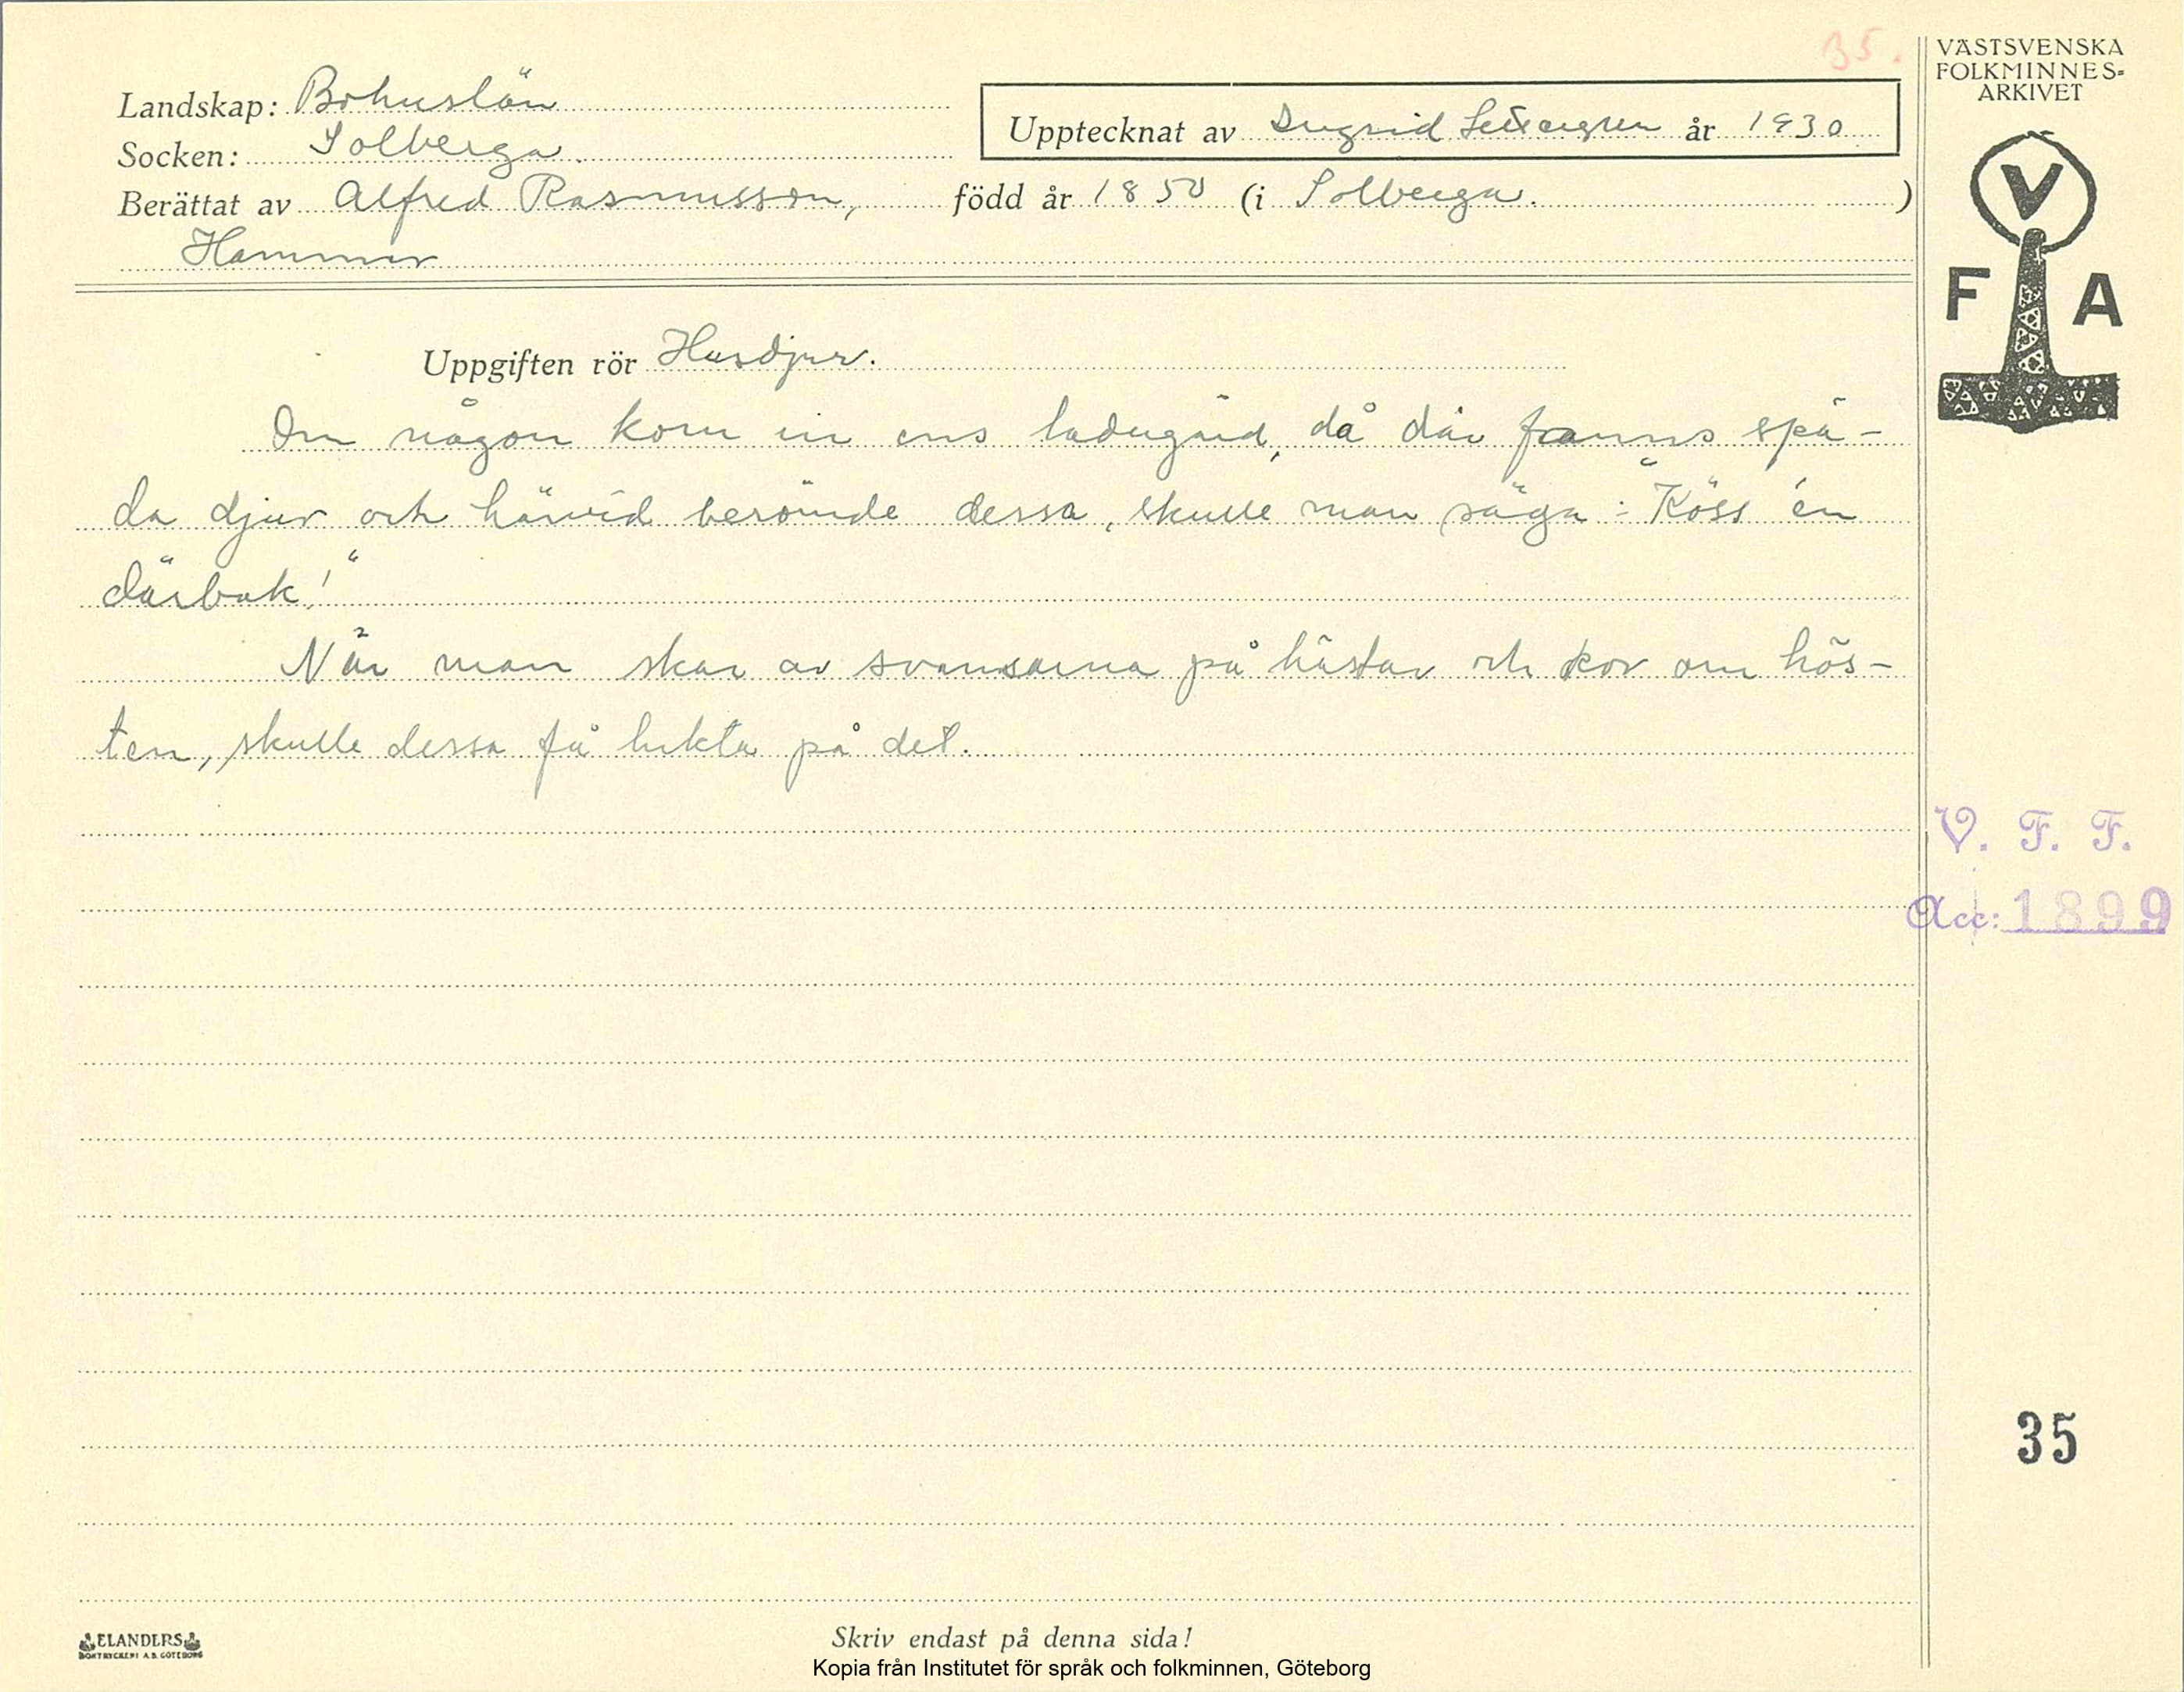 35.
VÄSTSVENSKA
FOLKMINNES-
ARKIVET
Landskap: Bohuslän
Upptecknat av Ingrid år 1930
Socken: Solberga.
Berättat av Alfred Rasmusson, född år 1850 (i Solberga. )
Hammar
V
F A
Uppgiften rör Husdjur.
Om någon kom in ens ladugård, då där fanns spä-
da djur och härvid berömde dessa, skulle man säga: "Köss én
därbak!"
När man skar av svansarna på hästar och kor om hös-
ten, skulle dessa få lukta på det.
V. F. F.
Acc: 1899
35
ELANDERS
BOKTRYCKERI A.B. GÖTEBORG
Skriv endast på denna sida!
Kopia från Institutet för språk och folkminnen, Göteborg